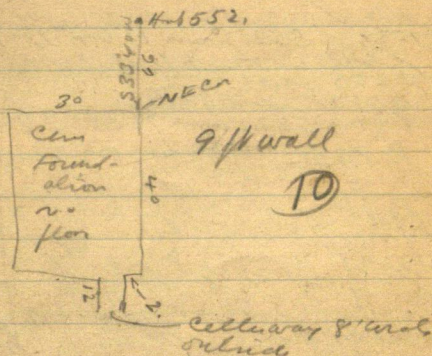 Hub 552.
S 33° 40' W
66
30
NE Cor
Cem
Foundation
no
floor
40
9 ft wall
10
12
12
Cellarway 8' wide
outside